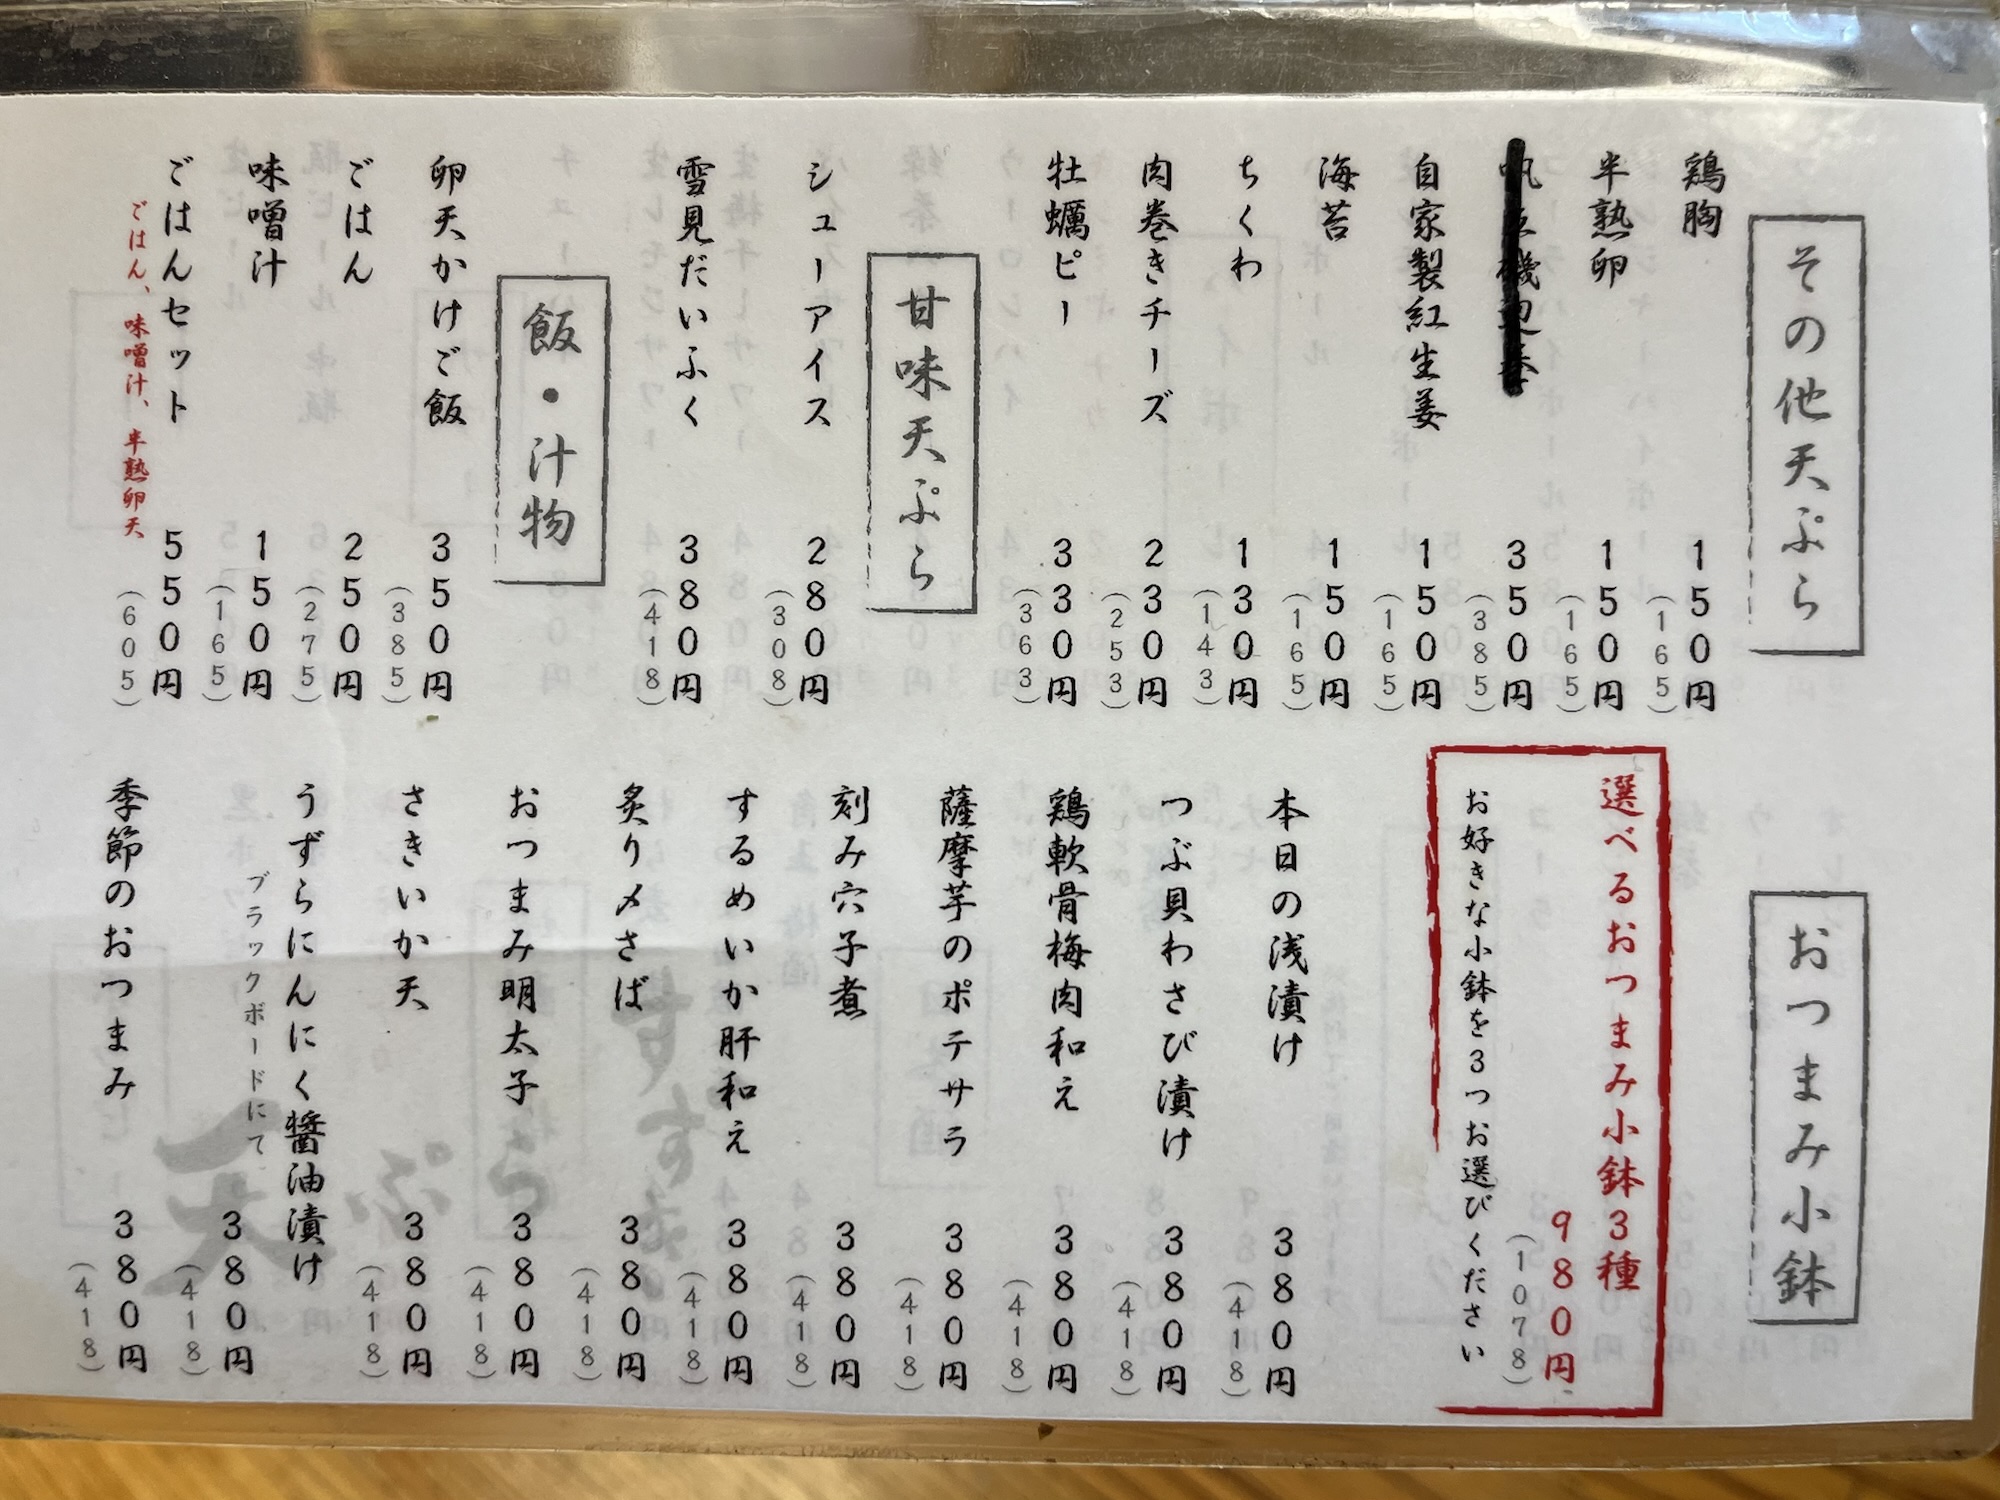 その他天ぷら
鶏胸 150円 (165)
半熟卵 150円 (165)
磯辺巻 350円 (385)
自家製紅生姜 150円 (165)
海苔 150円 (165)
ちくわ 130円 (143)
肉巻きチーズ 230円 (253)
牡蠣ピー 330円 (363)
甘味天ぷら
シューアイス 280円 (308)
雪見だいふく 380円 (418)
飯・汁物
卵天かけご飯 350円 (385)
ごはん 250円 (275)
味噌汁 150円 (165)
ごはんセット 550円 (605)
ごはん、味噌汁、半熟卵天
おつまみ小鉢
選べるおつまみ小鉢3種
980円 (1078)
お好きな小鉢を3つお選びください
本日の浅漬け 380円 (418)
つぶ貝わさび漬け 380円 (418)
鶏軟骨梅肉和え 380円 (418)
薩摩芋のポテサラ 380円 (418)
刻み穴子煮 380円 (418)
するめいか肝和え 380円 (418)
炙り〆さば 380円 (418)
おつまみ明太子 380円 (418)
さきいか天 380円 (418)
うずらにんにく醤油漬け 380円 (418)
ブラックボードにて
季節のおつまみ 380円 (418)